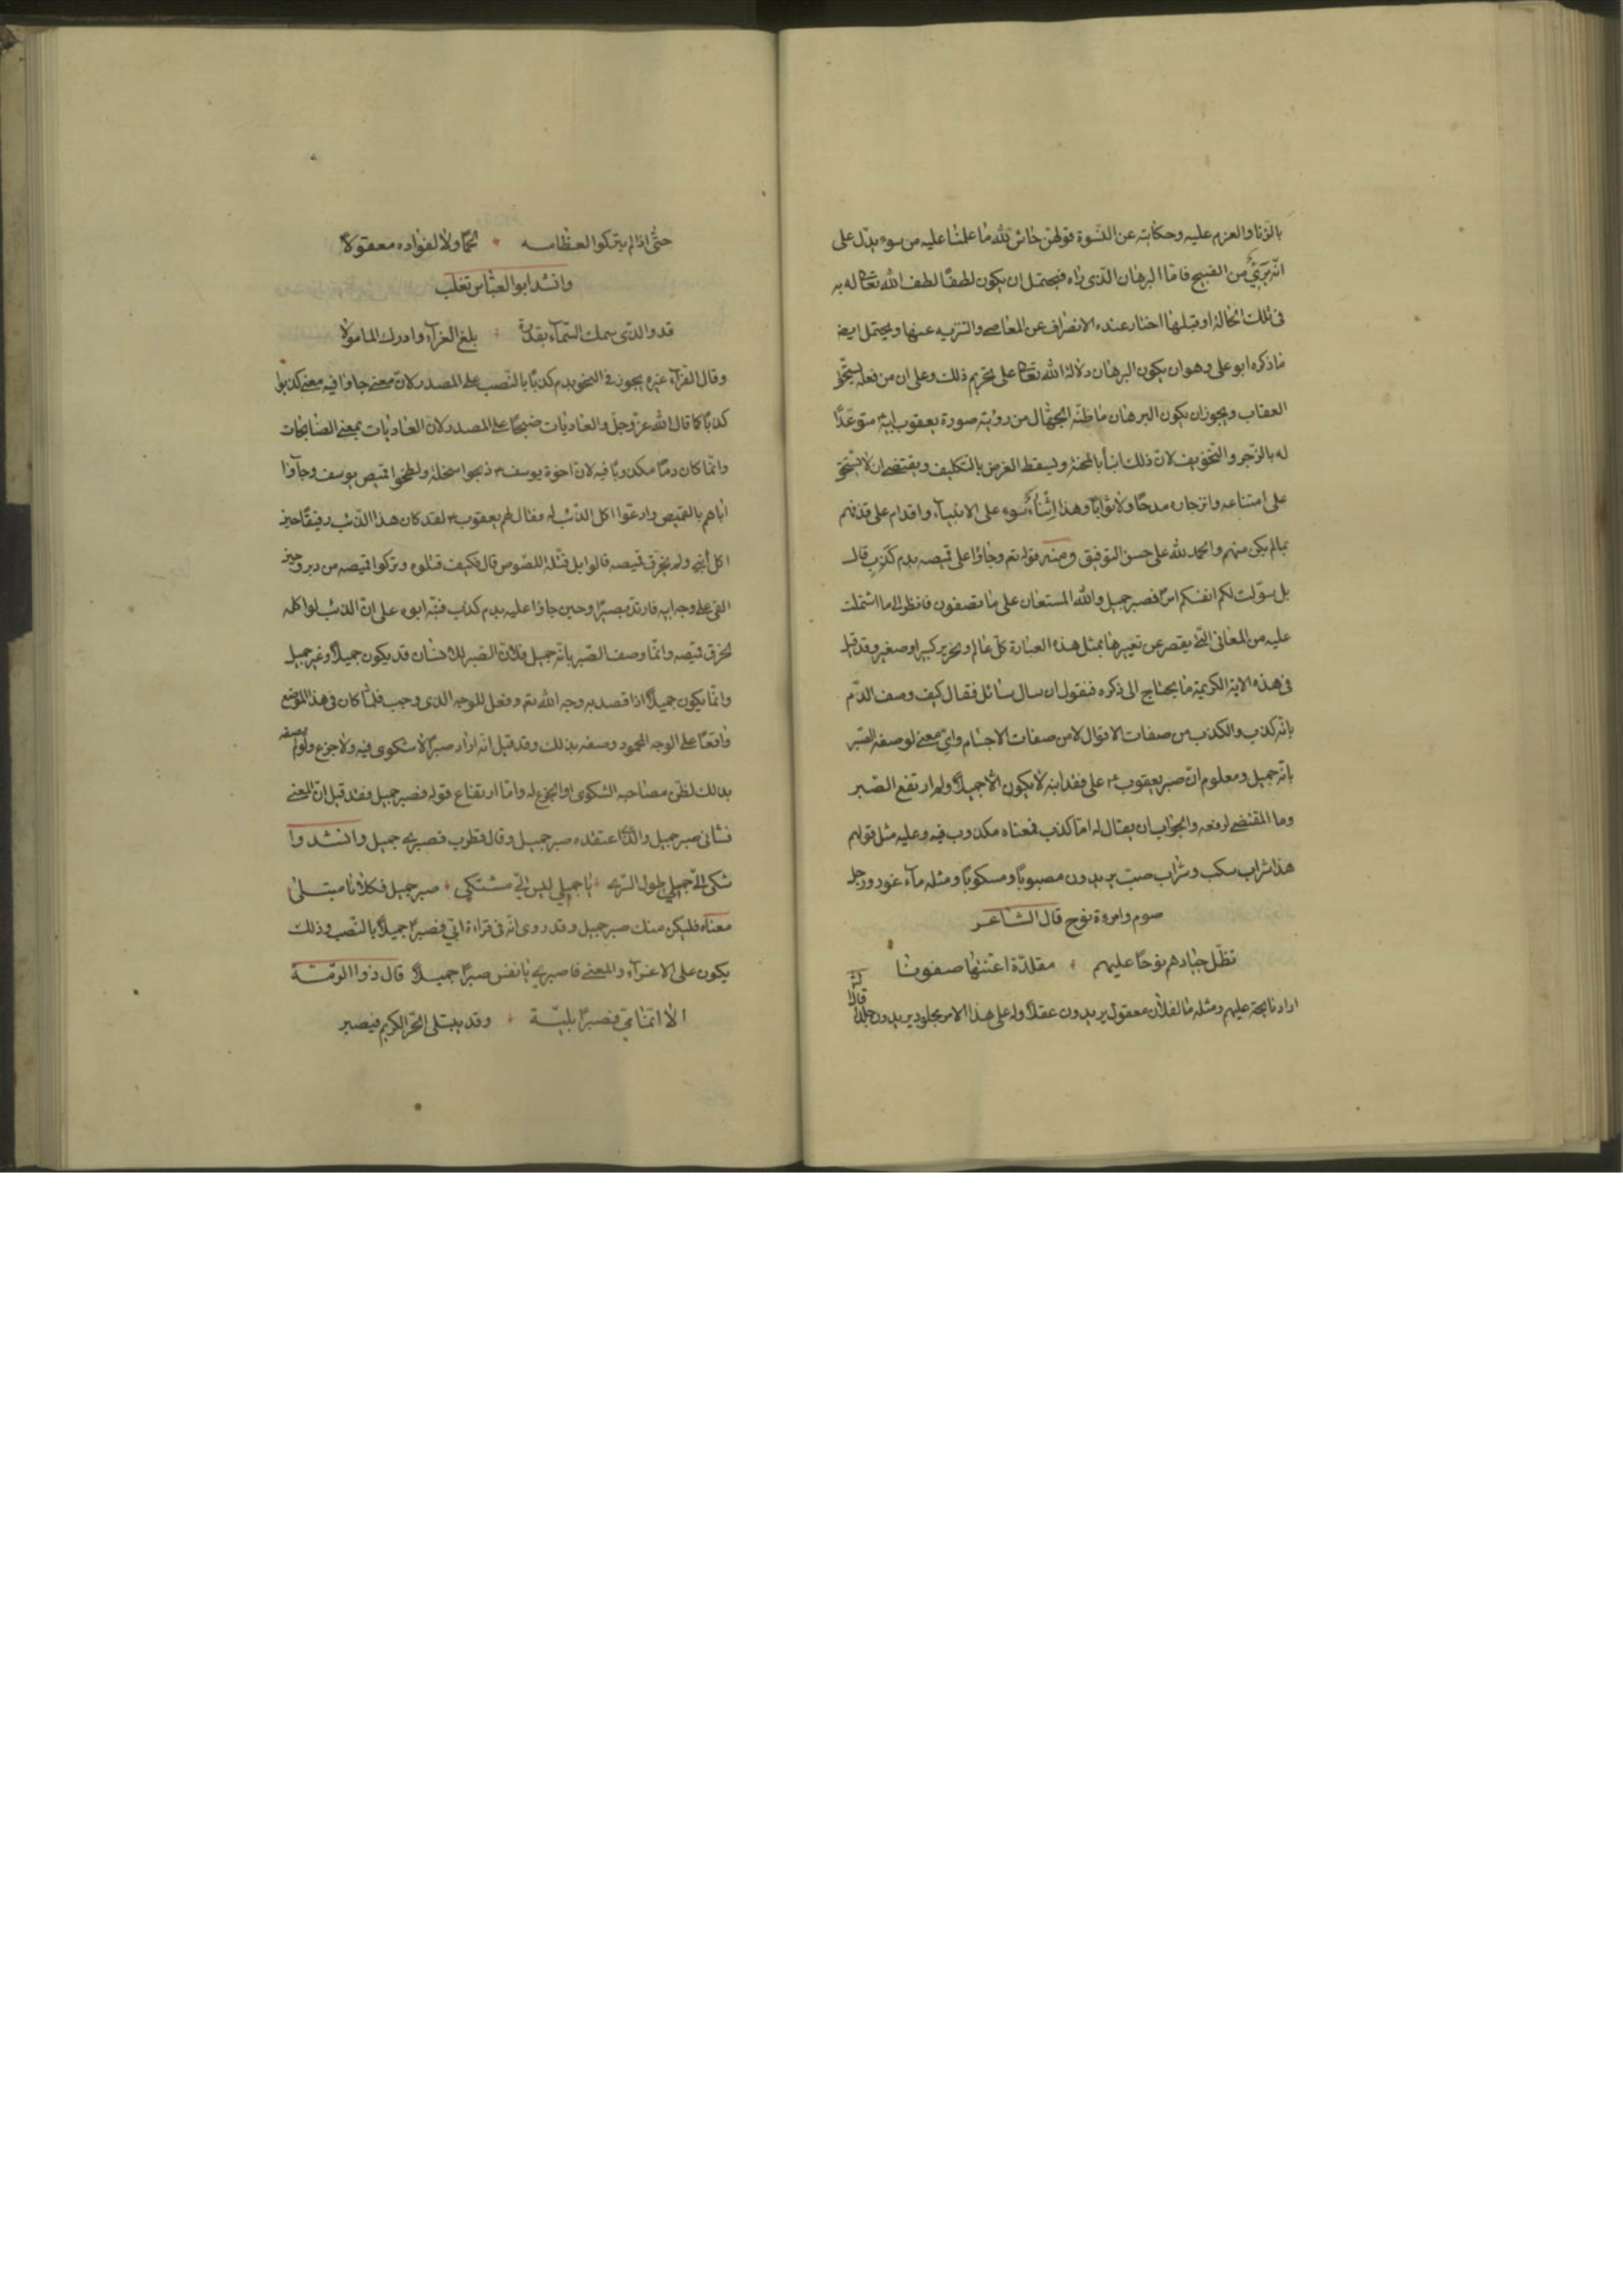 بالزنا والعزم عليه وحكايته عن النسوة قولهن حاش لله ما علمنا عليه من سوء يدل على
انه بريء من القبيح فاما البرهان الذي راه فيحتمل ان يكون لطفا لطف الله تعالى له به
في تلك الحالة او قبلها اختار عنده الانصراف عن المعاصي والتنزيه عنها ويحتمل ايض
ما ذكره ابو علي وهو ان يكون البرهان دلالة الله تعالى على تحريم ذلك وعلى ان من فعله يستحق
العقاب ويجوز ان يكون البرهان ما ظنه الجهال من روية صورة يعقوب ابيه متوعدا
له بالزجر والتخويف لان ذلك بالمحنة ويسقط الغرض بالتكليف ويقتضي ان لا يستحق
على امتناعه وانزجاره مدحا ولا ثوابا وهذا ثناء سوء على الانبياء واقدام على قذفهم
بما لم يكن منهم والحمد لله على حسن التوفيق ومنه قوله تع وجاؤا على قميصه بدم كذب قال
بل سولت لكم انفسكم امرا فصبر جميل والله المستعان على ما تصفون فانظر الى ما اشتملت
عليه من المعاني التي يقصر عن تعبيرها بمثل هذه العبارة كل عالم ونحرير كبير او صغير وقد قيل
في هذه الاية الكريمة ما يحتاج الى ذكره فنقول ان سال سائل فقال كيف وصف الدم
بانه كذب والكذب من صفات الاقوال لا من صفات الاجسام واي معنى لوصفه الصبر
بانه جميل ومعلوم ان صبر يعقوب ع على فقد ابنه لا يكون الا جميلا ولم ارتفع الصبر
وما المقتضي لرفعه والجواب ان يقال له اما كذب فمعناه مكذوب فيه وعليه مثل قولهم
هذا شراب سكب وشراب صب يريدون مصبوبا ومسكوبا ومثله ماء غور ورجل
صوم وامرءة نوح قال الشاعر
تظل جيادهم نوحا عليهم مقلدة اعنتها صفونا
اراد نائحة عليهم ومثله ما لفلان معقول يريدون عقلا وله على هذا الامر مجلود يريدون جلدا
قال
حتى اذا لم يتركوا لعظامه لحما ولا لفواده معقولا
وانشد ابو العباس تغلب
قد والذي سمك السماء بقدرة بلغ العزاء وادرك المامولا
وقال الفراء غيره يجوز في النحو بدم كذبا بالنصب على المصدر لان معنى جاؤا فيه معنى كذبوا
كذبا كما قال الله عز وجل والعاديات ضبحا على المصدر لان العاديات بمعنى الضابحات
وانما كان دما مكذوبا فيه لان اخوة يوسف ع ذبحوا سخلة ولطخوا قميص يوسف وجاؤا
اباهم بالقميص وادعوا اكل الذئب له فقال لهم يعقوب ع لقد كان هذا الذئب رفيقا حين
اكل ابني ولم يخرق قميصه قالوا بل قتله اللصوص قال فكيف قتلوه وتركوا قميصه من دبر وحين
القى على وجه ابيه فارتد بصيرا وحين جاؤا عليه بدم كذب فنبه ابوه على ان الذئب لو اكله
لخرق قميصه وانما وصف الصبر بانه جميل فلان الصبر للانسان قد يكون جميلا وغير جميل
وانما يكون جميلا اذا قصد به وجه الله تع وفعل للوجه الذي وجب فلما كان في هذا الموضع
واقعا على الوجه المحمود وصفه بذلك وقد قيل انه اراد صبرا لا شكوى فيه ولا جزع ولو لم يصفه
بذلك لظن مصاحبه الشكوى او الجزع له واما ارتفاع قوله فصبر جميل فقد قيل ان المعنى
فشاني صبر جميل والذي اعتقده صبر جميل وقال قطرب فصبري جميل وانشدوا
شكى الي جملي طول السرى يا جملي ليس الي مشتكى صبر جميل فكلانا مبتلى
معناه فليكن منك صبر جميل وقد روى انه في قراءة ابي فصبرا جميلا بالنصب وذلك
يكون على الاغراء والمعنى فاصبري يا نفس صبرا جميلا قال ذو الرمة
الا انما مي فصبرا بلية وقد يبتلى الحر الكريم فيصبر